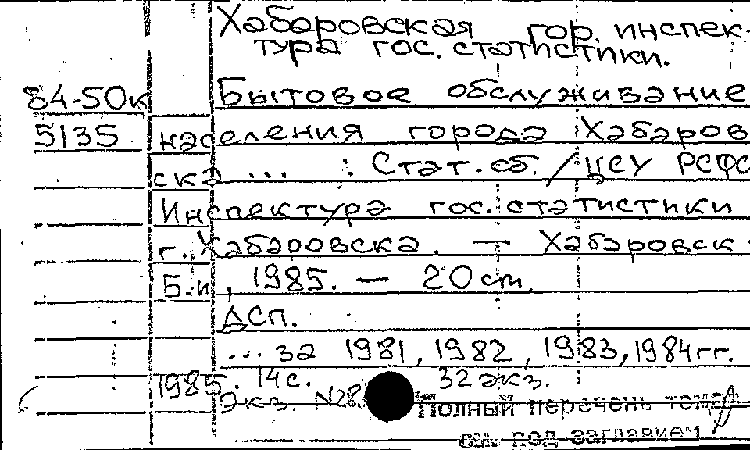 Хабаровская гор. инспек-
тура гос. статистики.
84-50к Бытовое обслуживание
5135 населения города Хабаров
ска ... : Стат. сб. / ЦСУ РСФС
Инспектура гос. статистики
г. Хабаровска. — Хабаровск
Б.и, 1985. — 20 см.
ДСП.
... за 1981, 1982, 1983, 1984 гг.
1985. 14 с. 32 экз.
Экз. N28 Полный перечень
см. под заглавием